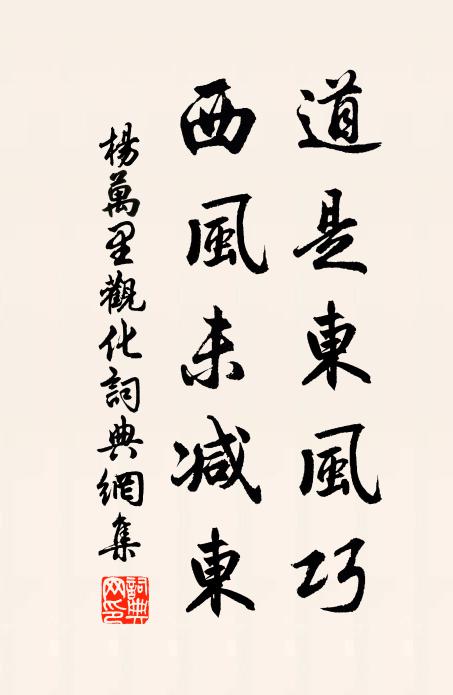 道是東風巧
西風未減東
楊萬里觀化詞典網集
詞典网印